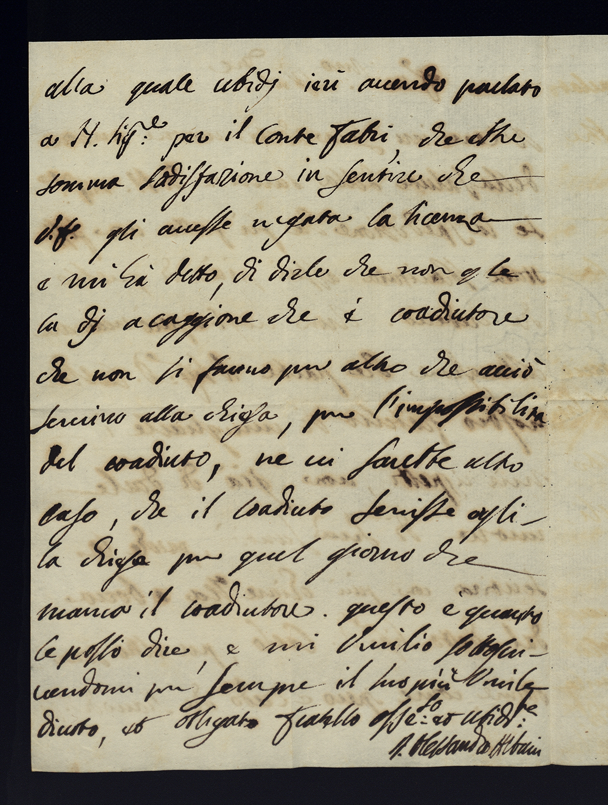 alla quale ubidj ieri avendo parlato
a N. Sig.re per il Conte Fabri, che ebbe
somma sadisfazione in sentire che
gli avesse negata la licenza
e mi hà detto, di dirle che non
la dj a caggione che è coadiutore
che non si fanno per altro che acciò
servino alla chiesa, per l'impossibilità
del coadiuto, ne vi sarebbe altro
caso, che il coadiuto servisse egli
la chiesa per quel giorno che
manca il coadiutore. questo è quanto
le posso dire, e mi umilio sottoscri-
vendomi per sempre il suo più umile
diuoto, et obligato fratello osse.mo et ubid.te
Alessandro Albani